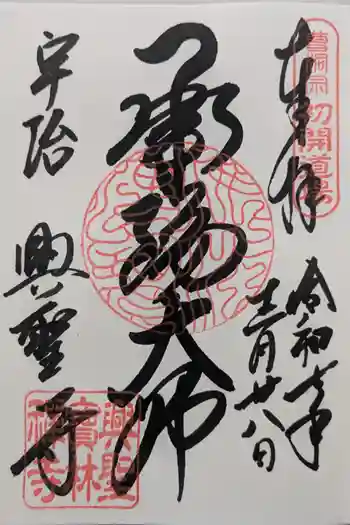 奉拝
曹洞宗初開道場
令和年
十二月廿八日
承陽大師
宇治
興聖寺
興聖
寶林
禅寺